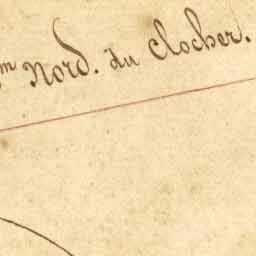 m Nord. du Clocher.